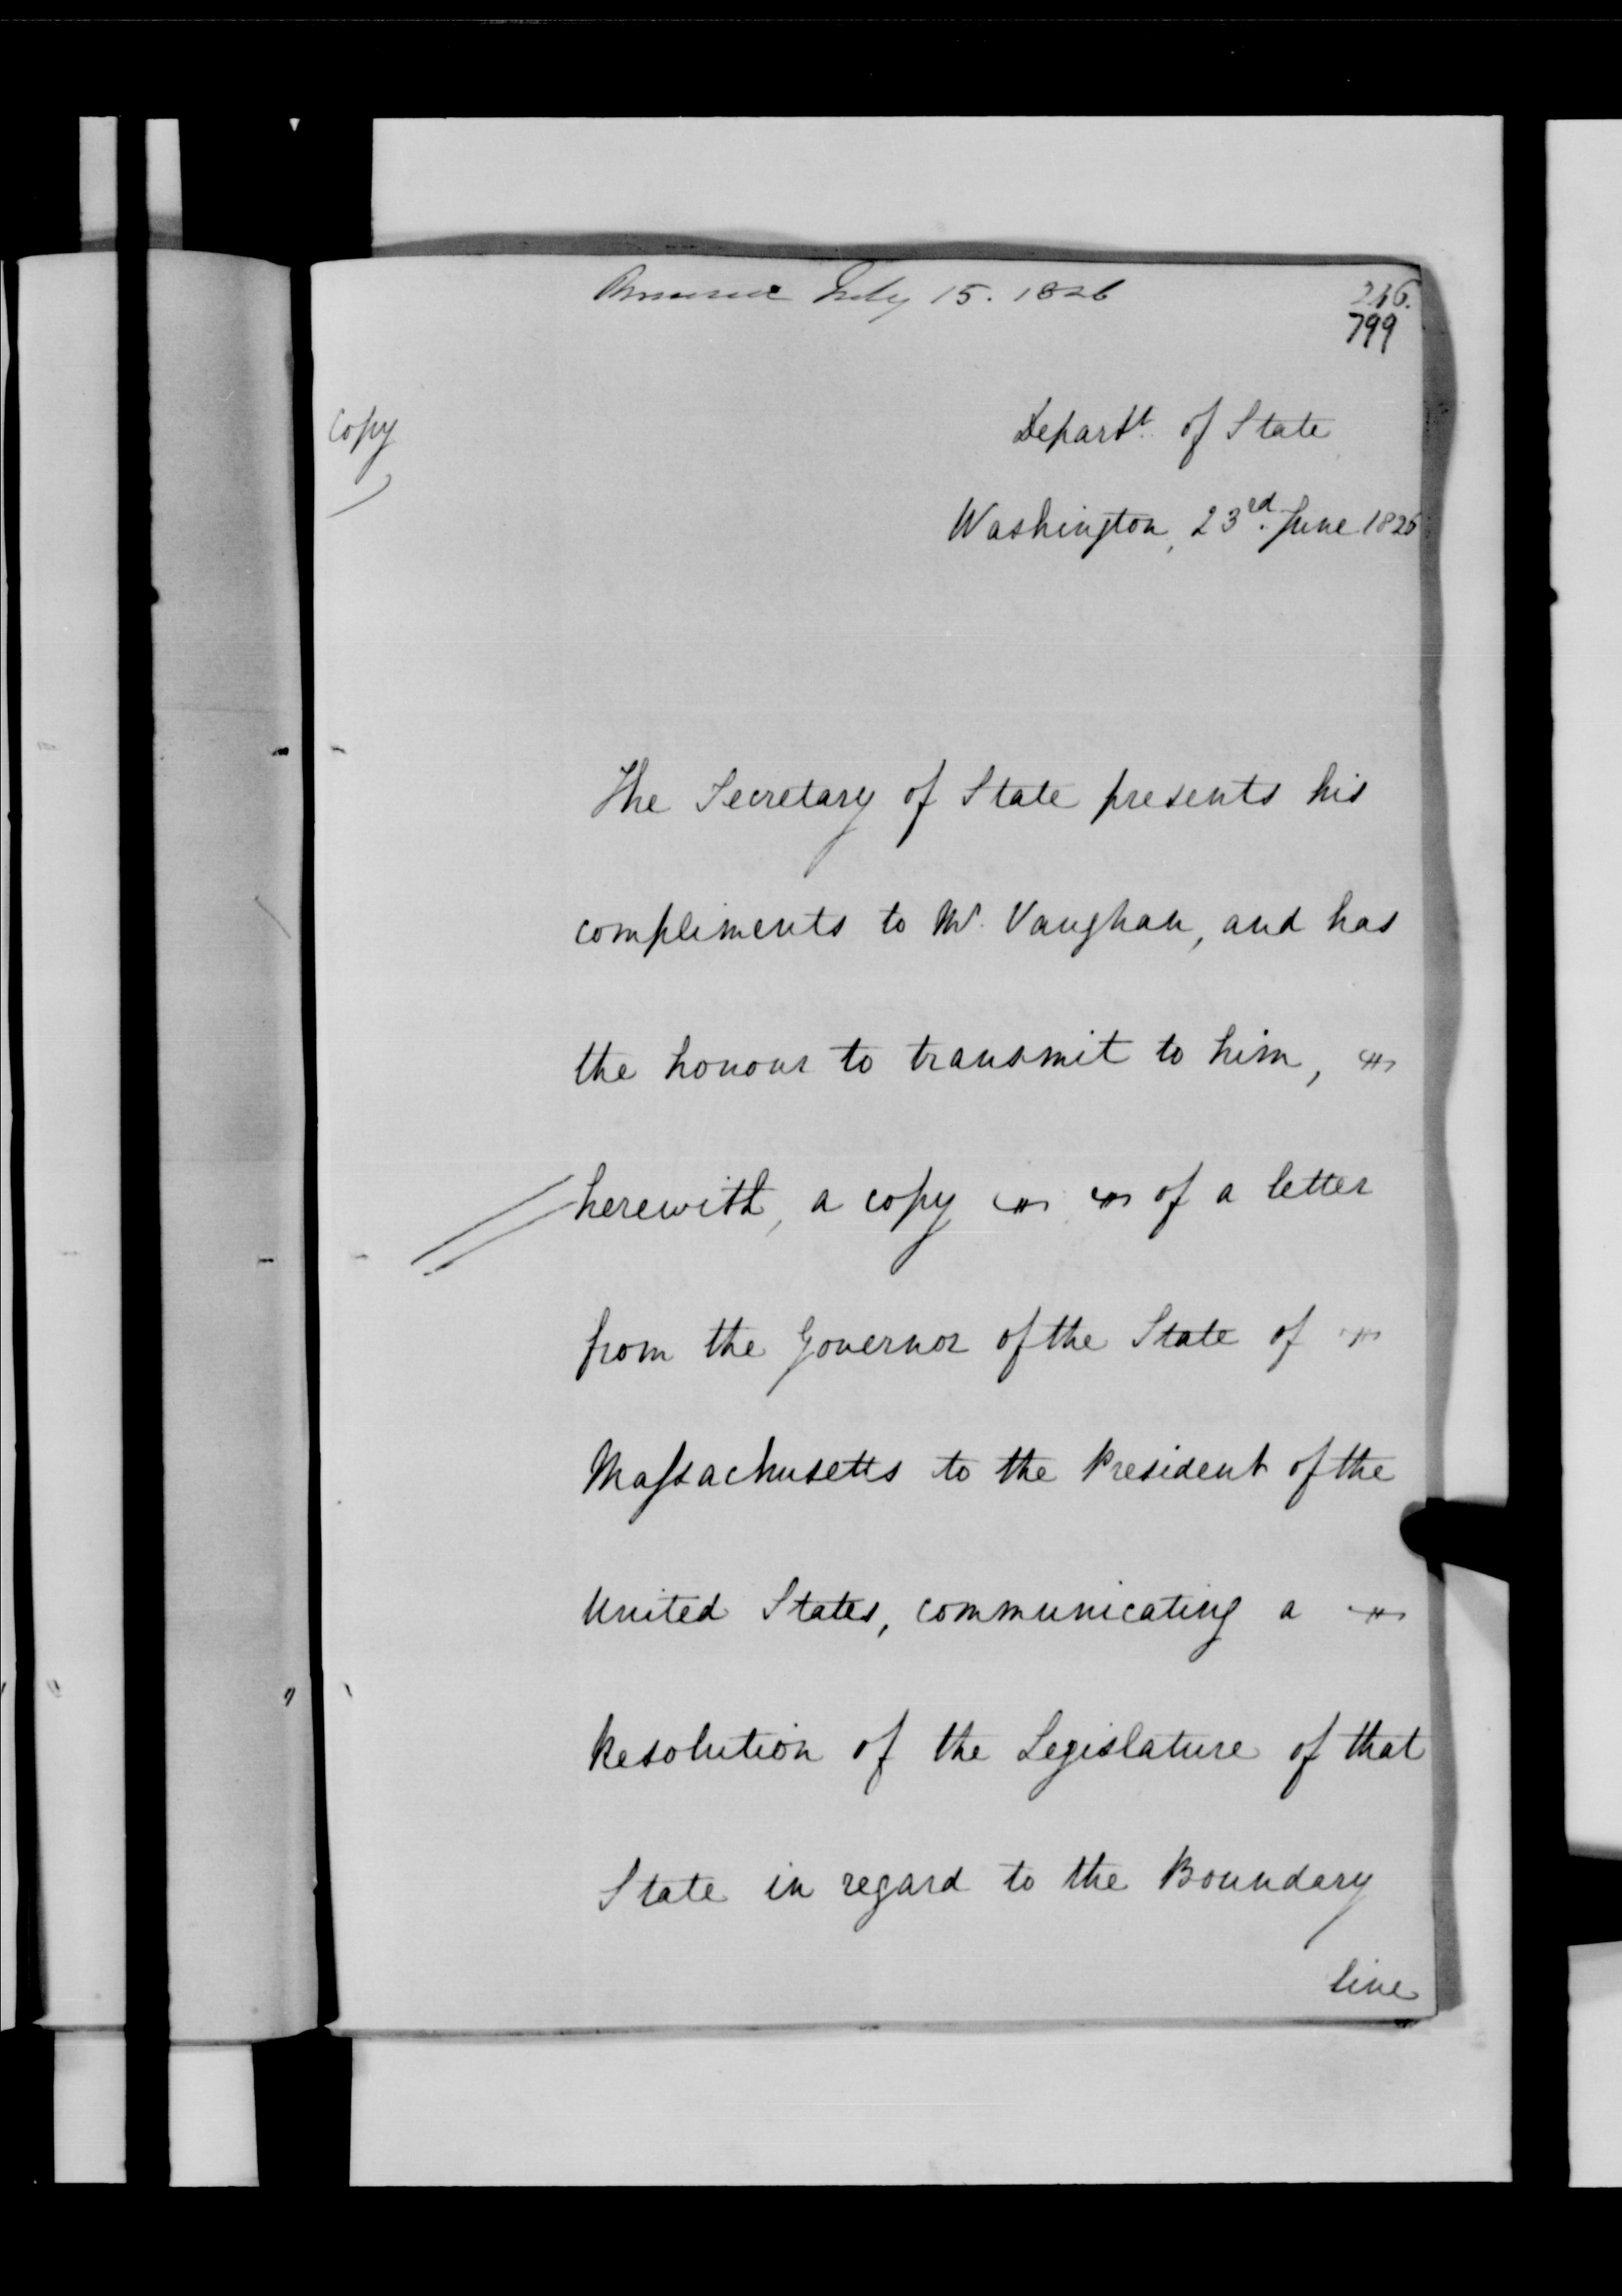 July 15. 1826
236.
799
Copy
Departt. of State
Washington, 23rd. June 1826
The Secretary of State presents his
compliments to Mr. Vaughan, and has
the honour to transmit to him,
herewith, a copy of a letter
from the Governor of the State of
Maſsachusetts to the President of the
United States, communicating a
Resolution of the Legislature of that
State in regard to the Boundary
line